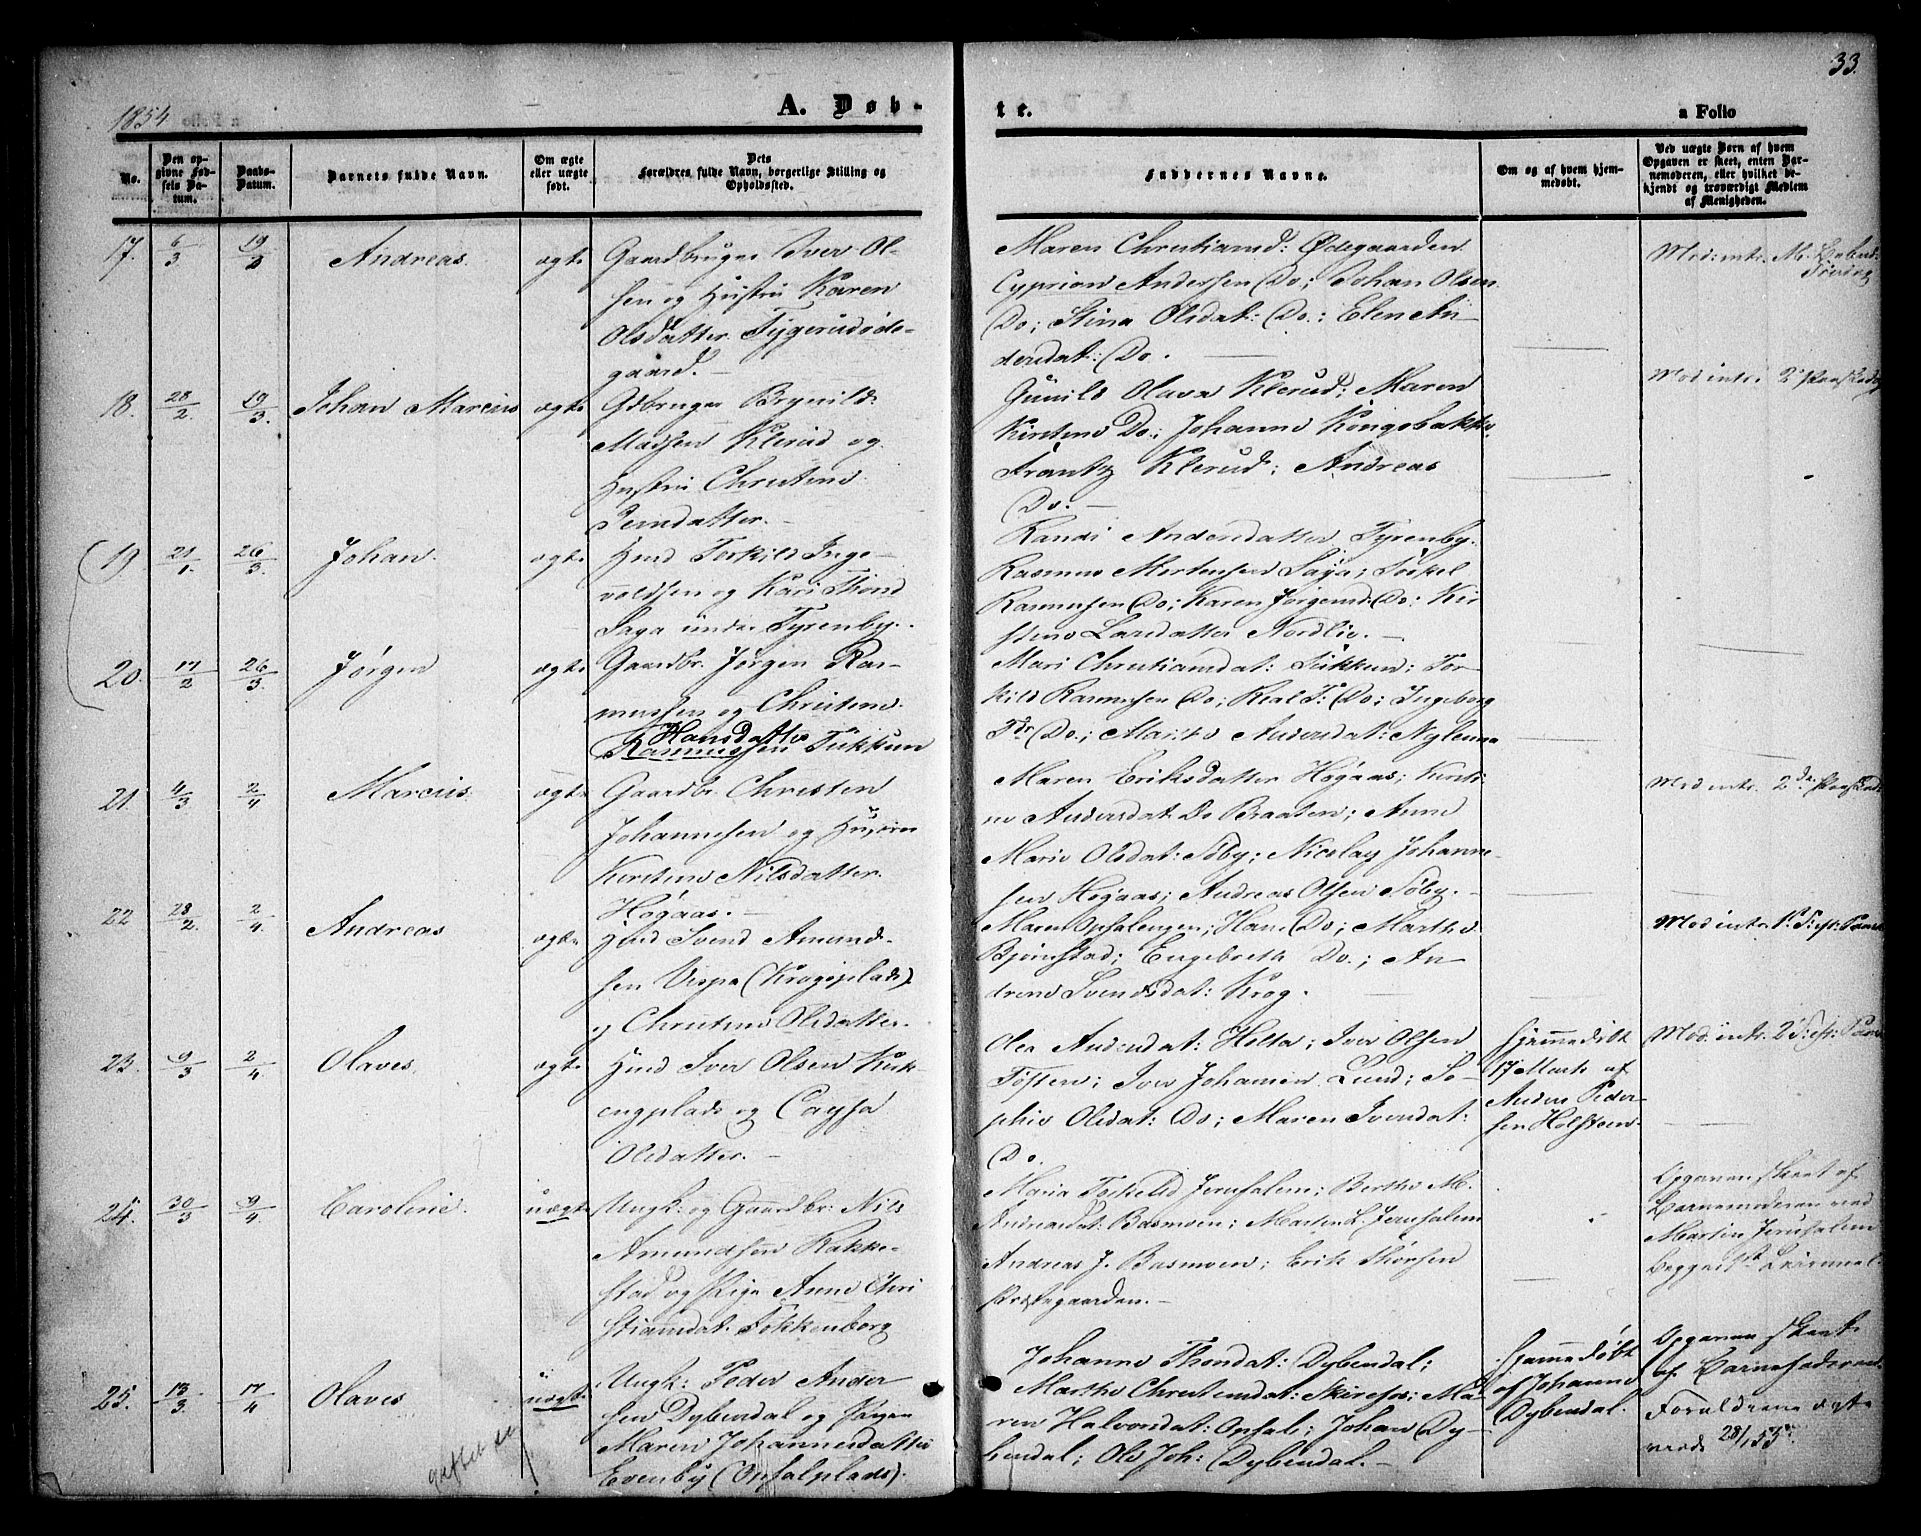 1854
A. Døb-
te.
a Folio
33.
No.
Den op-
givne Fød-
sels Da-
tum.
Daabs-
Datum.
Barnets fulde Navn.
Om ægte
eller uægte
født.
Dets
Forældres fulde Navn, borgerlige Stilling og
Opholdssted.
Faddernes Navne.
Om og af hvem hjem-
medøbt.
Ved uægte Børn af hvem
Opgaven er skeet, enten Bar-
nemoderen, eller hvilket be-
kjendt og troværdigt Medlem
af Menigheden.
17. 6/3 19/3 Andreas. ægte
Gaardbruger Iver Ol-
sen og Hustru Karen
Olsdatter Tygerudøde-
gaard.
Maren Christiansd: Ødegaarden
Cyprian Anderssen Do; Johan Olsen
Do; Stina Olsdat: Do: Elen An-
dersdat: Do.
Mod: intr.
18. 28/2 19/3 Johan Marcius ægte
Gdbruger Brynild
Madsen Klerud og
Hustru Christine
Jensdatter.
Gunild Olava Klerud; Maren
Kirstine Do; Johanne Kongsbakke
Frantz Klerud; Andreas
Do.
Mod intr. 2 Paaskedag
19 21/1 26/3 Johan. ægte
Hmd Torkild Inge-
voldsen og Kari Thond
Saga under Tyrenby.
Randi Andersdatter Tyrenby.
Rasmus Mortensen Saga; Torkel
Rasmussen Do; Karen Jørgensd: Do: Kir
stine Larsdatter Nordlie.
20. 17/2 26/3 Jørgen ægte
Gaardbr. Jørgen Ras-
mussen og Christine
Hansdatter
Rasmussen Tukkun
Mari Christiansdat: Tukkun; Tor-
kild Rasmussen Do; Real T: Do; Ingeborg
Tdr Do; Marthe Andersdat: Nyleuna
21. 4/3 2/4 Marcius. ægte
Gaardbr. Christen
Johannesen og Hustru
Kirstine Nilsdatter.
Høgaas.
Maren Eriksdatter Høgaas; Kirsti-
ne Andersdat: Do Braaten; Anne
Marie Olsdat: Søby; Nicolay Johanne-
sen Høgaas; Andreas Olsen Søby.
Mod intr. 2den Paaskedag
22 28/2 2/4 Andreas ægte
Hmd Svend Amund-
sen Vispa (Krogsplads)
og Christine Olsdatter.
Maren Opsalengen; Hans Do; Marthe
Bjørnstad; Engebreth Do.; An-
drine Svendsdat: Krog.
Mod intr. 1. S: eft: Paaske
23. 9/3 2/4 Olaves. ægte
Hmd Iver Olsen Kirk-
engplads og Caysa
Olsdatter.
Olea Andersdat: Holta; Iver Olsen
Toften; Iver Johannesen Lund; So-
phie Olsdat: Do; Maren Iversdat:
Do.
Hjemmedøbt
17 Marts af
Anders Peder-
sen Holsteen.
Mod: intr. 2 S: eft: Paaske
24. 30/3 9/4 Caroline. uægte
Ungk: og Gaardbr: Nils
Amundsen Kakke-
stad og Pige Anne Chri
stiansdat: Fokkenborg
Maria Torkelsd Jerusalem; Berthe M.
Andreasdat: Basmoen; Marten L. Jerusalem
Andreas J. Basmoen; Erik Thorsen
Præstegaarden.
Opgaven skeet af
Barnemoderen ved
Martin Jerusalem
Begges 1st Leiermaal
25. 13/3 17/4 Olaves uægte
Ungk: Peder Ander
sen Dybendal og Pigen
Maren Johannesdatter
Evenby (Opsalplads).
Johanne Thordat: Dybendal;
Marthe Christensdat: Skirefss; Ma-
ren Halvorsdat: Opsal; Johan Dy-
bendal; Ole Joh: Dybendal.
Hjemmedøbt
af Johanne
Dybendal.
Opgaven skeet
af Barnefaderen
Forældrene ægte
viede 28/1 55.